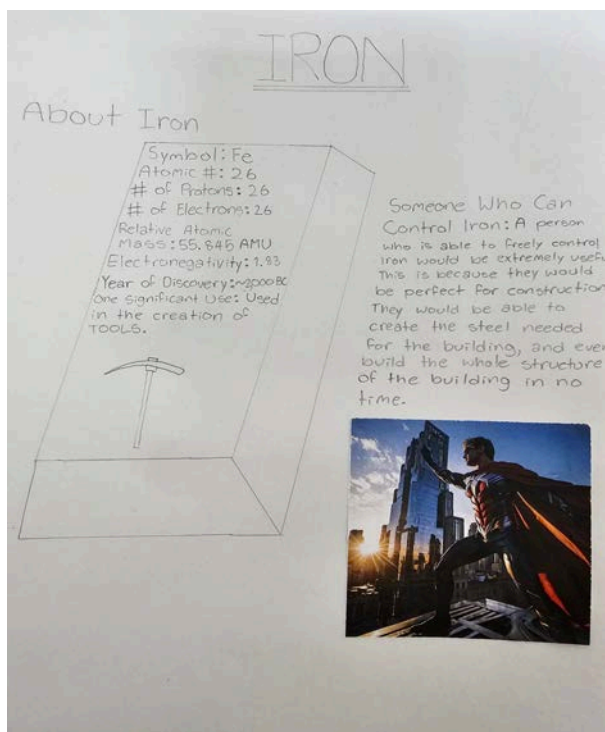 IRON
About Iron
Symbol: Fe
Atomic #: 26
# of Protons: 26
# of Electrons: 26
Relative Atomic
Mass: 55.845 AMU
Electronegativity: 1.83
Year of Discovery: ~2000 BC
One significant Use: Used
in the creation of
TOOLS.
Someone Who Can
Control Iron: A person
who is able to freely control
iron would be extremely usefu
This is because they would
be perfect for construction
They would be able to
create the steel needed
for the building, and even
build the whole structure
of the building in no
time.